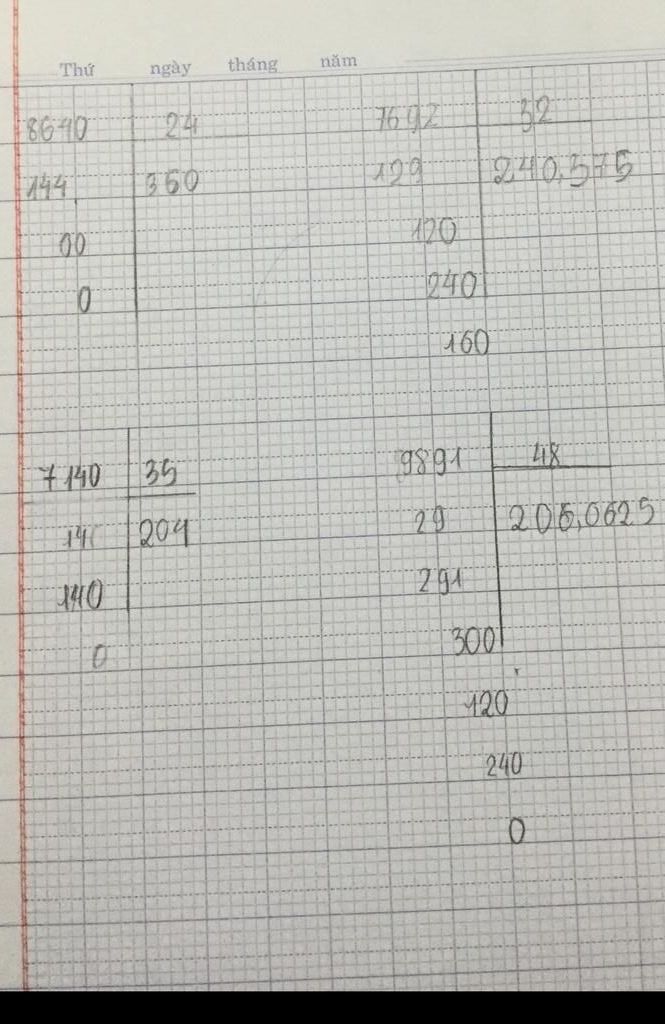 Thứ ngày tháng năm
8640 24 7692 32
144 360 129 240,375
00 120
0 240
160
7140 35 9891 48
14 204 29 206,0625
140 291
0 300
120
240
0